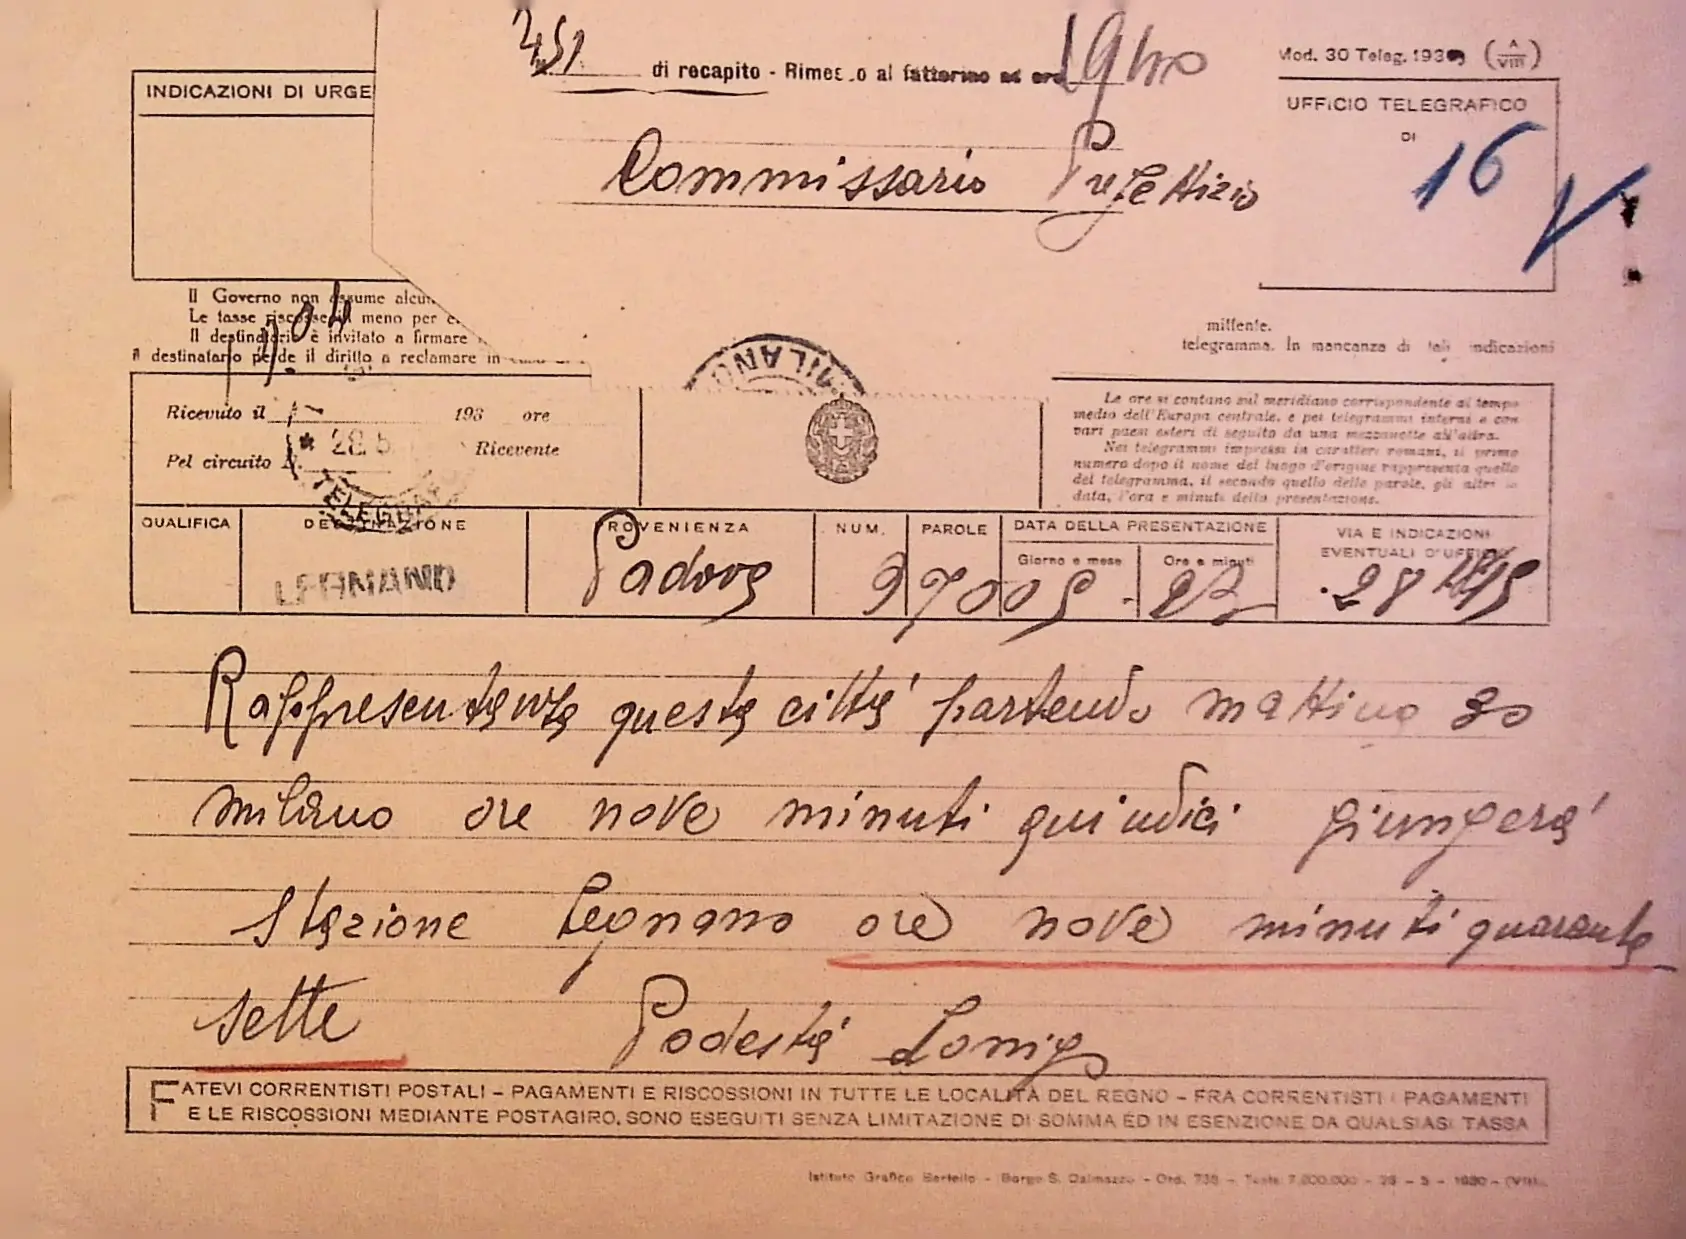 451 di recapito - Rimesso al fattorino ad ore 19
Mod. 30 Teleg. 193
INDICAZIONI DI URGE
UFFICIO TELEGRAFICO
DI
16
Commissario Prefettizio
Il Governo non assume alcun
Le tasse riscosse in meno per e
Il destinatario è invitato a firmare
Il destinatario perde il diritto a reclamare in
mittente.
telegramma. In mancanza di tali indicazioni
MILANO
Ricevuto il 193 ore
Pel circuito N. Ricevente
* 28.5
TELEGRAFO
Le ore si contano sul meridiano corrispondente al tempo
medio dell'Europa centrale, e pei telegrammi interni e con
vari paesi esteri di seguito da una mezzanotte all'altra.
Nei telegrammi impressi in caratteri romani, il primo
numero dopo il nome del luogo d'origine rappresenta quello
del telegramma, il secondo quello delle parole, gli altri la
data, l'ora e minuti della presentazione.
QUALIFICA DESTINAZIONE PROVENIENZA NUM. PAROLE DATA DELLA PRESENTAZIONE VIA E INDICAZIONI
Giorno e mese Ore e minuti EVENTUALI D'UFFICIO
LEGNANO Padova 28
Rappresentanza questa città partendo mattino 30
milano ore nove minuti quindici giungerà
stazione Legnano ore nove minuti quaranta
sette Podestà Lonigo
FATEVI CORRENTISTI POSTALI - PAGAMENTI E RISCOSSIONI IN TUTTE LE LOCALITÀ DEL REGNO - FRA CORRENTISTI I PAGAMENTI
E LE RISCOSSIONI MEDIANTE POSTAGIRO, SONO ESEGUITI SENZA LIMITAZIONE DI SOMMA ED IN ESENZIONE DA QUALSIASI TASSA
Istituto Grafico Bertello - Borgo S. Dalmazzo - Ord. 738 - 7.200.000 - 1930 - (VIII)